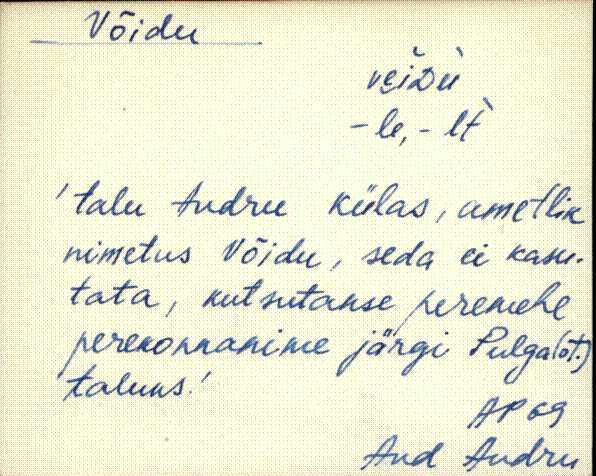 Võidu
-le, -lt
'talu Andru külas, ametlik
nimetus Võidu, seda ei kasu-
tata, kutsutakse peremehe
perekonnanime järgi Pulga(ot.)
taluks.'
AP 69
Aud Andru